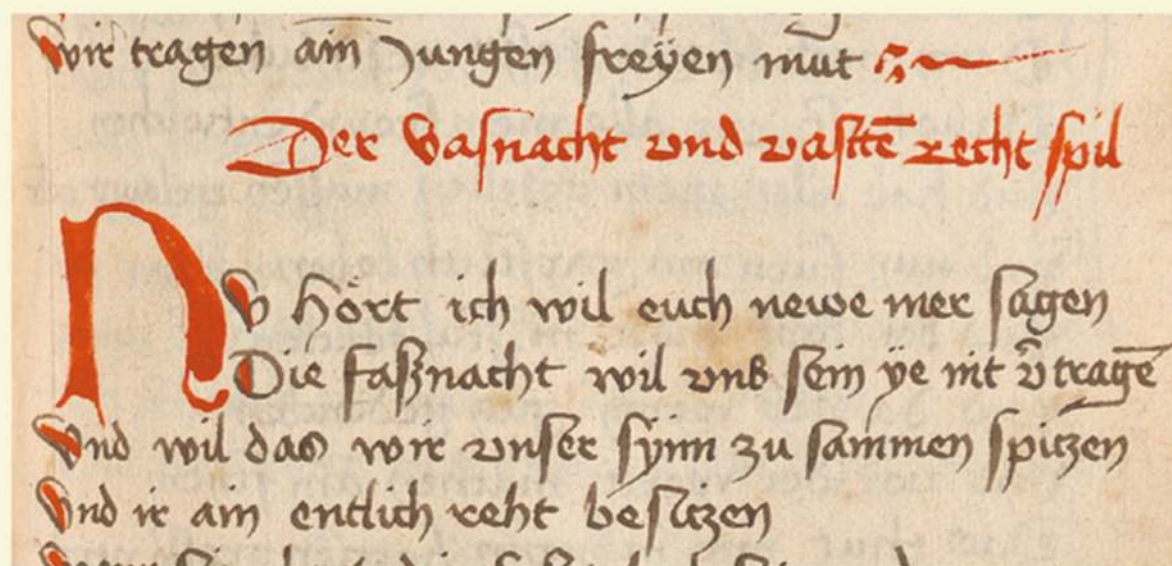 wir tragen ain Jungen freÿen mut
Der Vasnacht vnd vastē recht spil
NV Hört ich wil euch newe mer sagen
Die faßnacht wil vns sein ÿe nit v̄tragē
Vnd wil das wir vnser sÿnn zu sammen spitzen
Vnd ir ain entlich reht besitzen